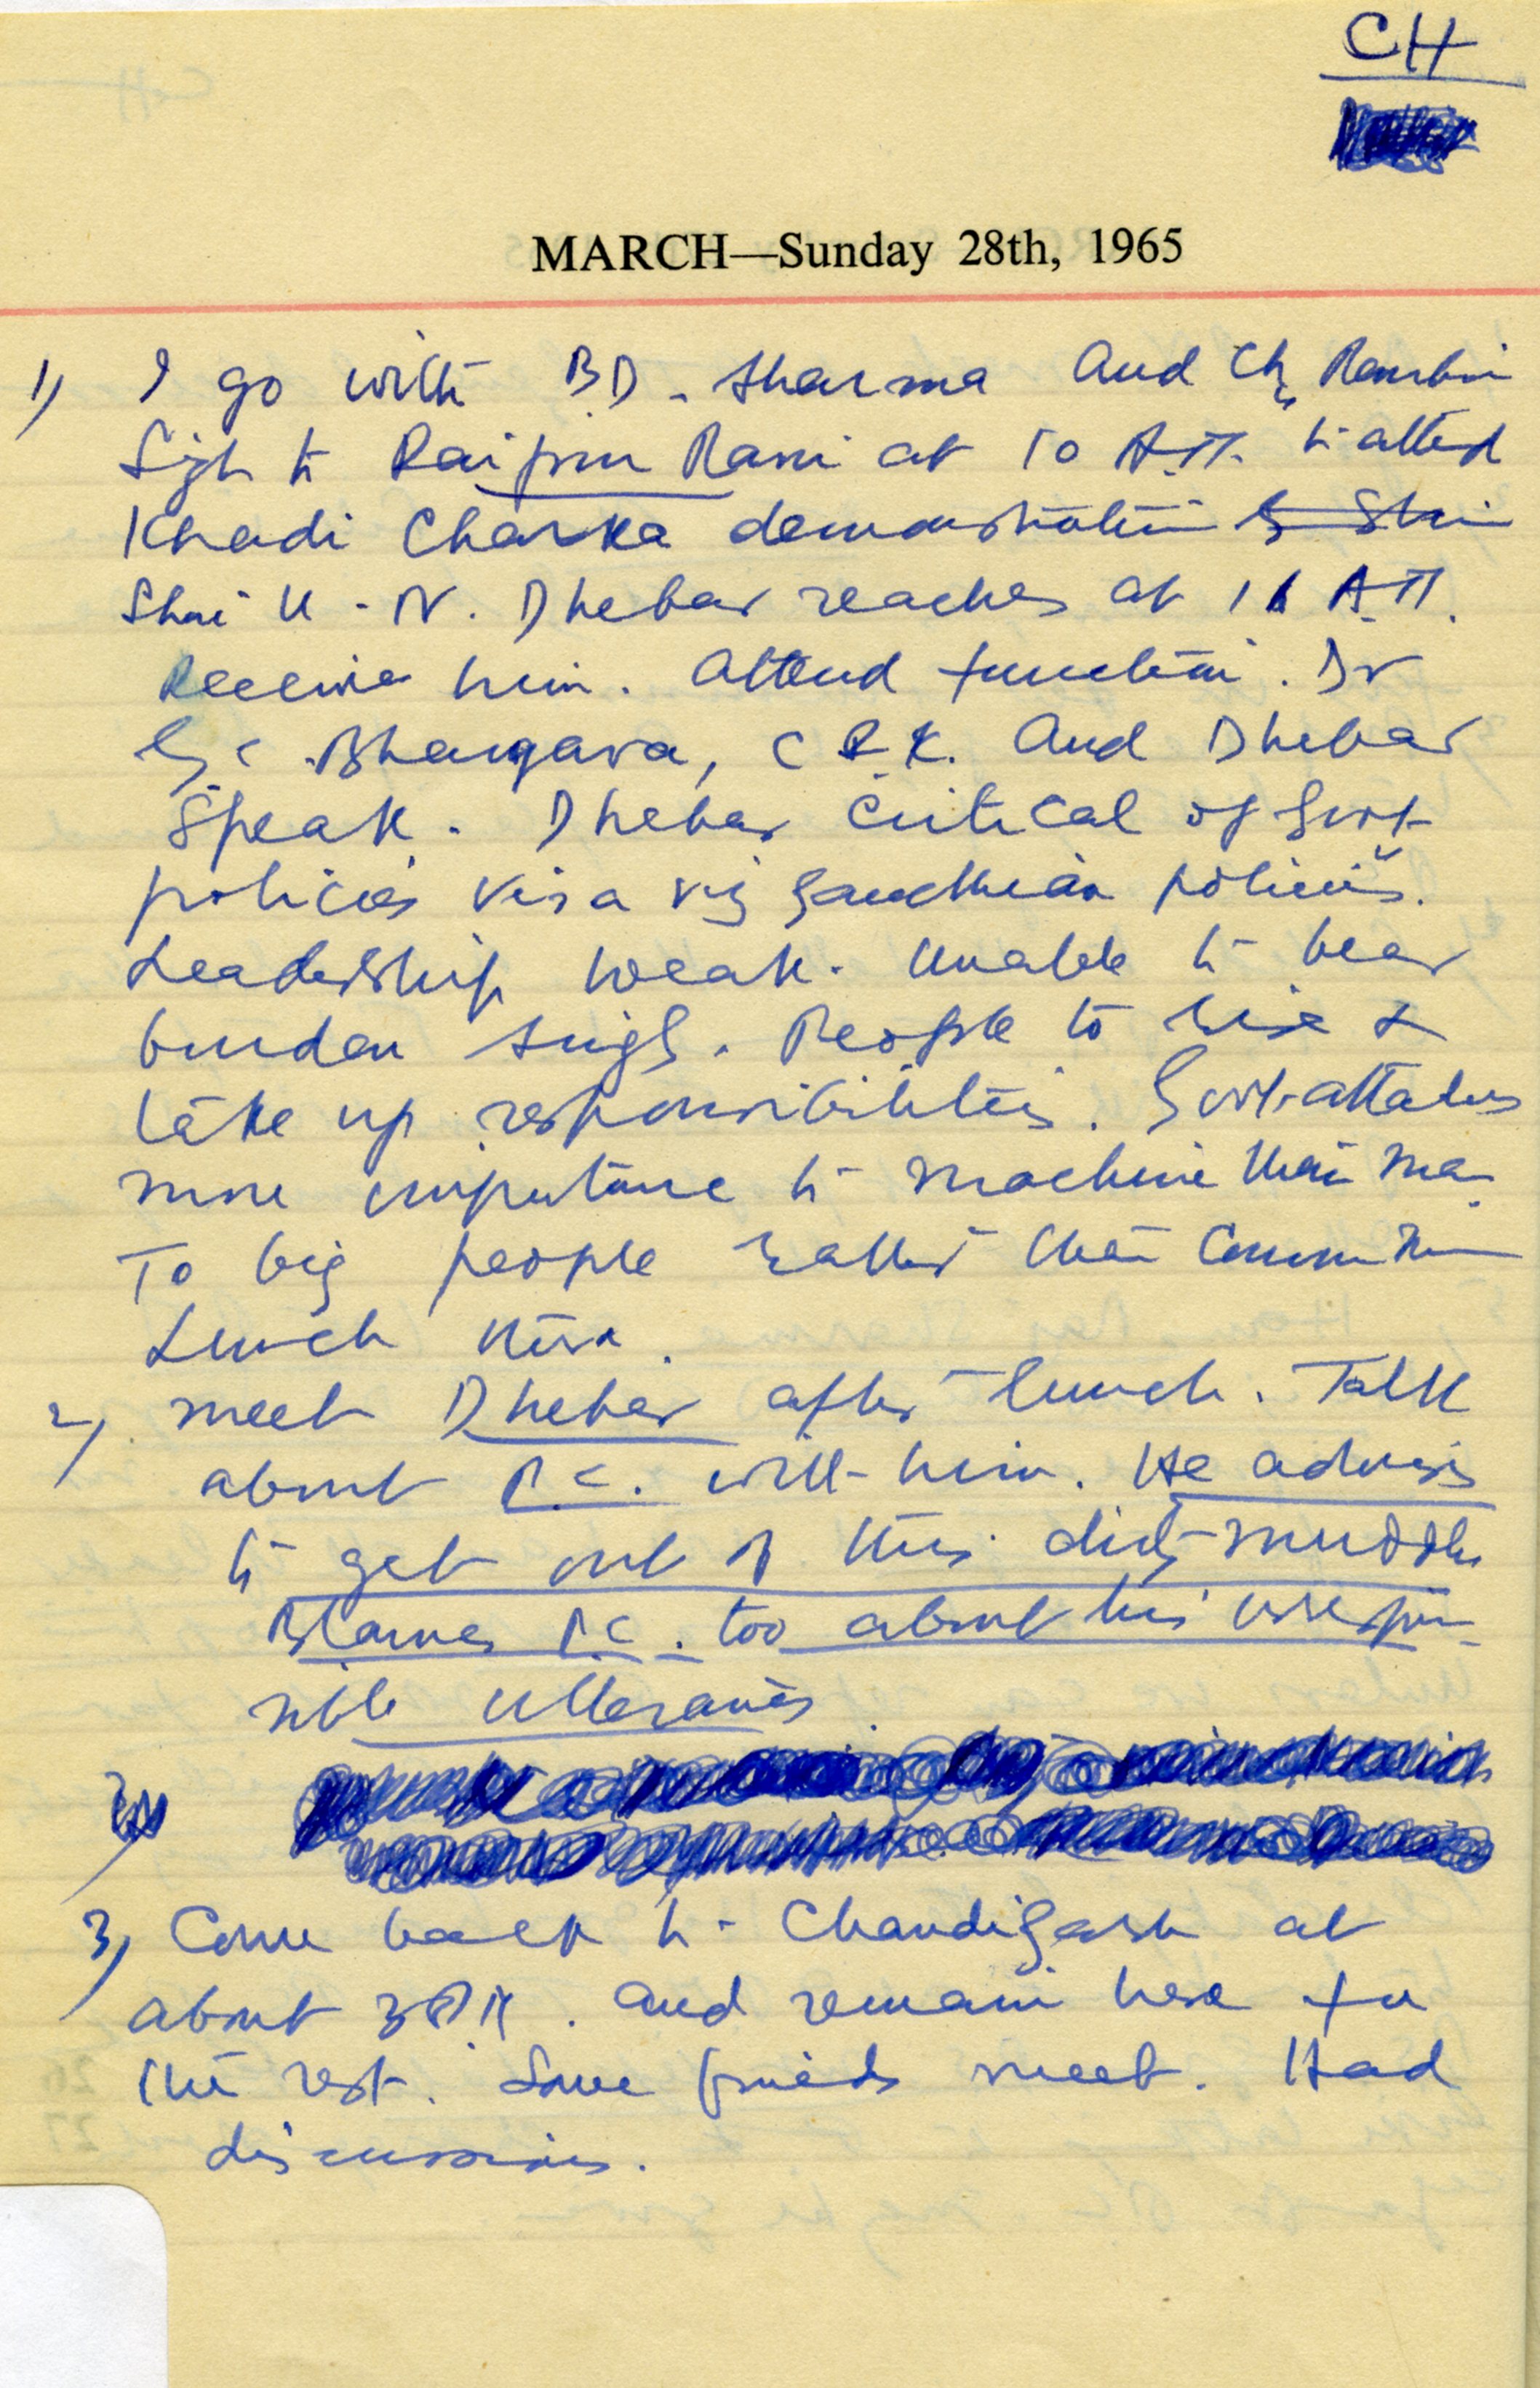 CH
MARCH—Sunday 28th, 1965
1) I go with BD. Sharma and Ch. Ranbir
Sigh to Raipur Rani at 10 A.M. to attend
Khadi Charka demonstration by Shri
Shri U. N. Dhebar reaches at 11 A.M.
Receive him. Attend function. Dr
G C Bhargava, C R.K. and Dhebar
speak. Dhebar critical of Govt
policies vis a vis Gandhian policies.
Leadership weak. Unable to bear
burden singly. People to rise &
take up responsibilities. Govt. attaches
more importance to machine than man.
To big people rather than common man
Lunch there.
2) meet Dhebar after lunch. Talk
about P.C. with him. He advises
to get out of this dirty muddle
Blames P.C. too about his irrespon-
sible utterances
3) Come back to Chandigarh at
about 3 P.M. and remain here for
the rest. Some friends meet. Had
discussions.